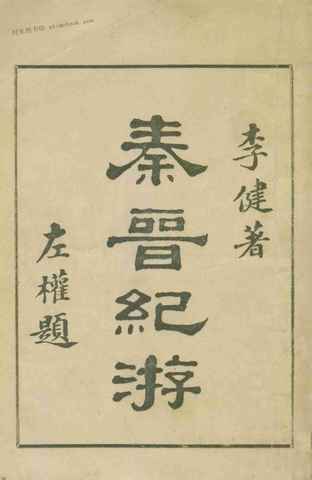 李健著
秦晋紀游
左權題